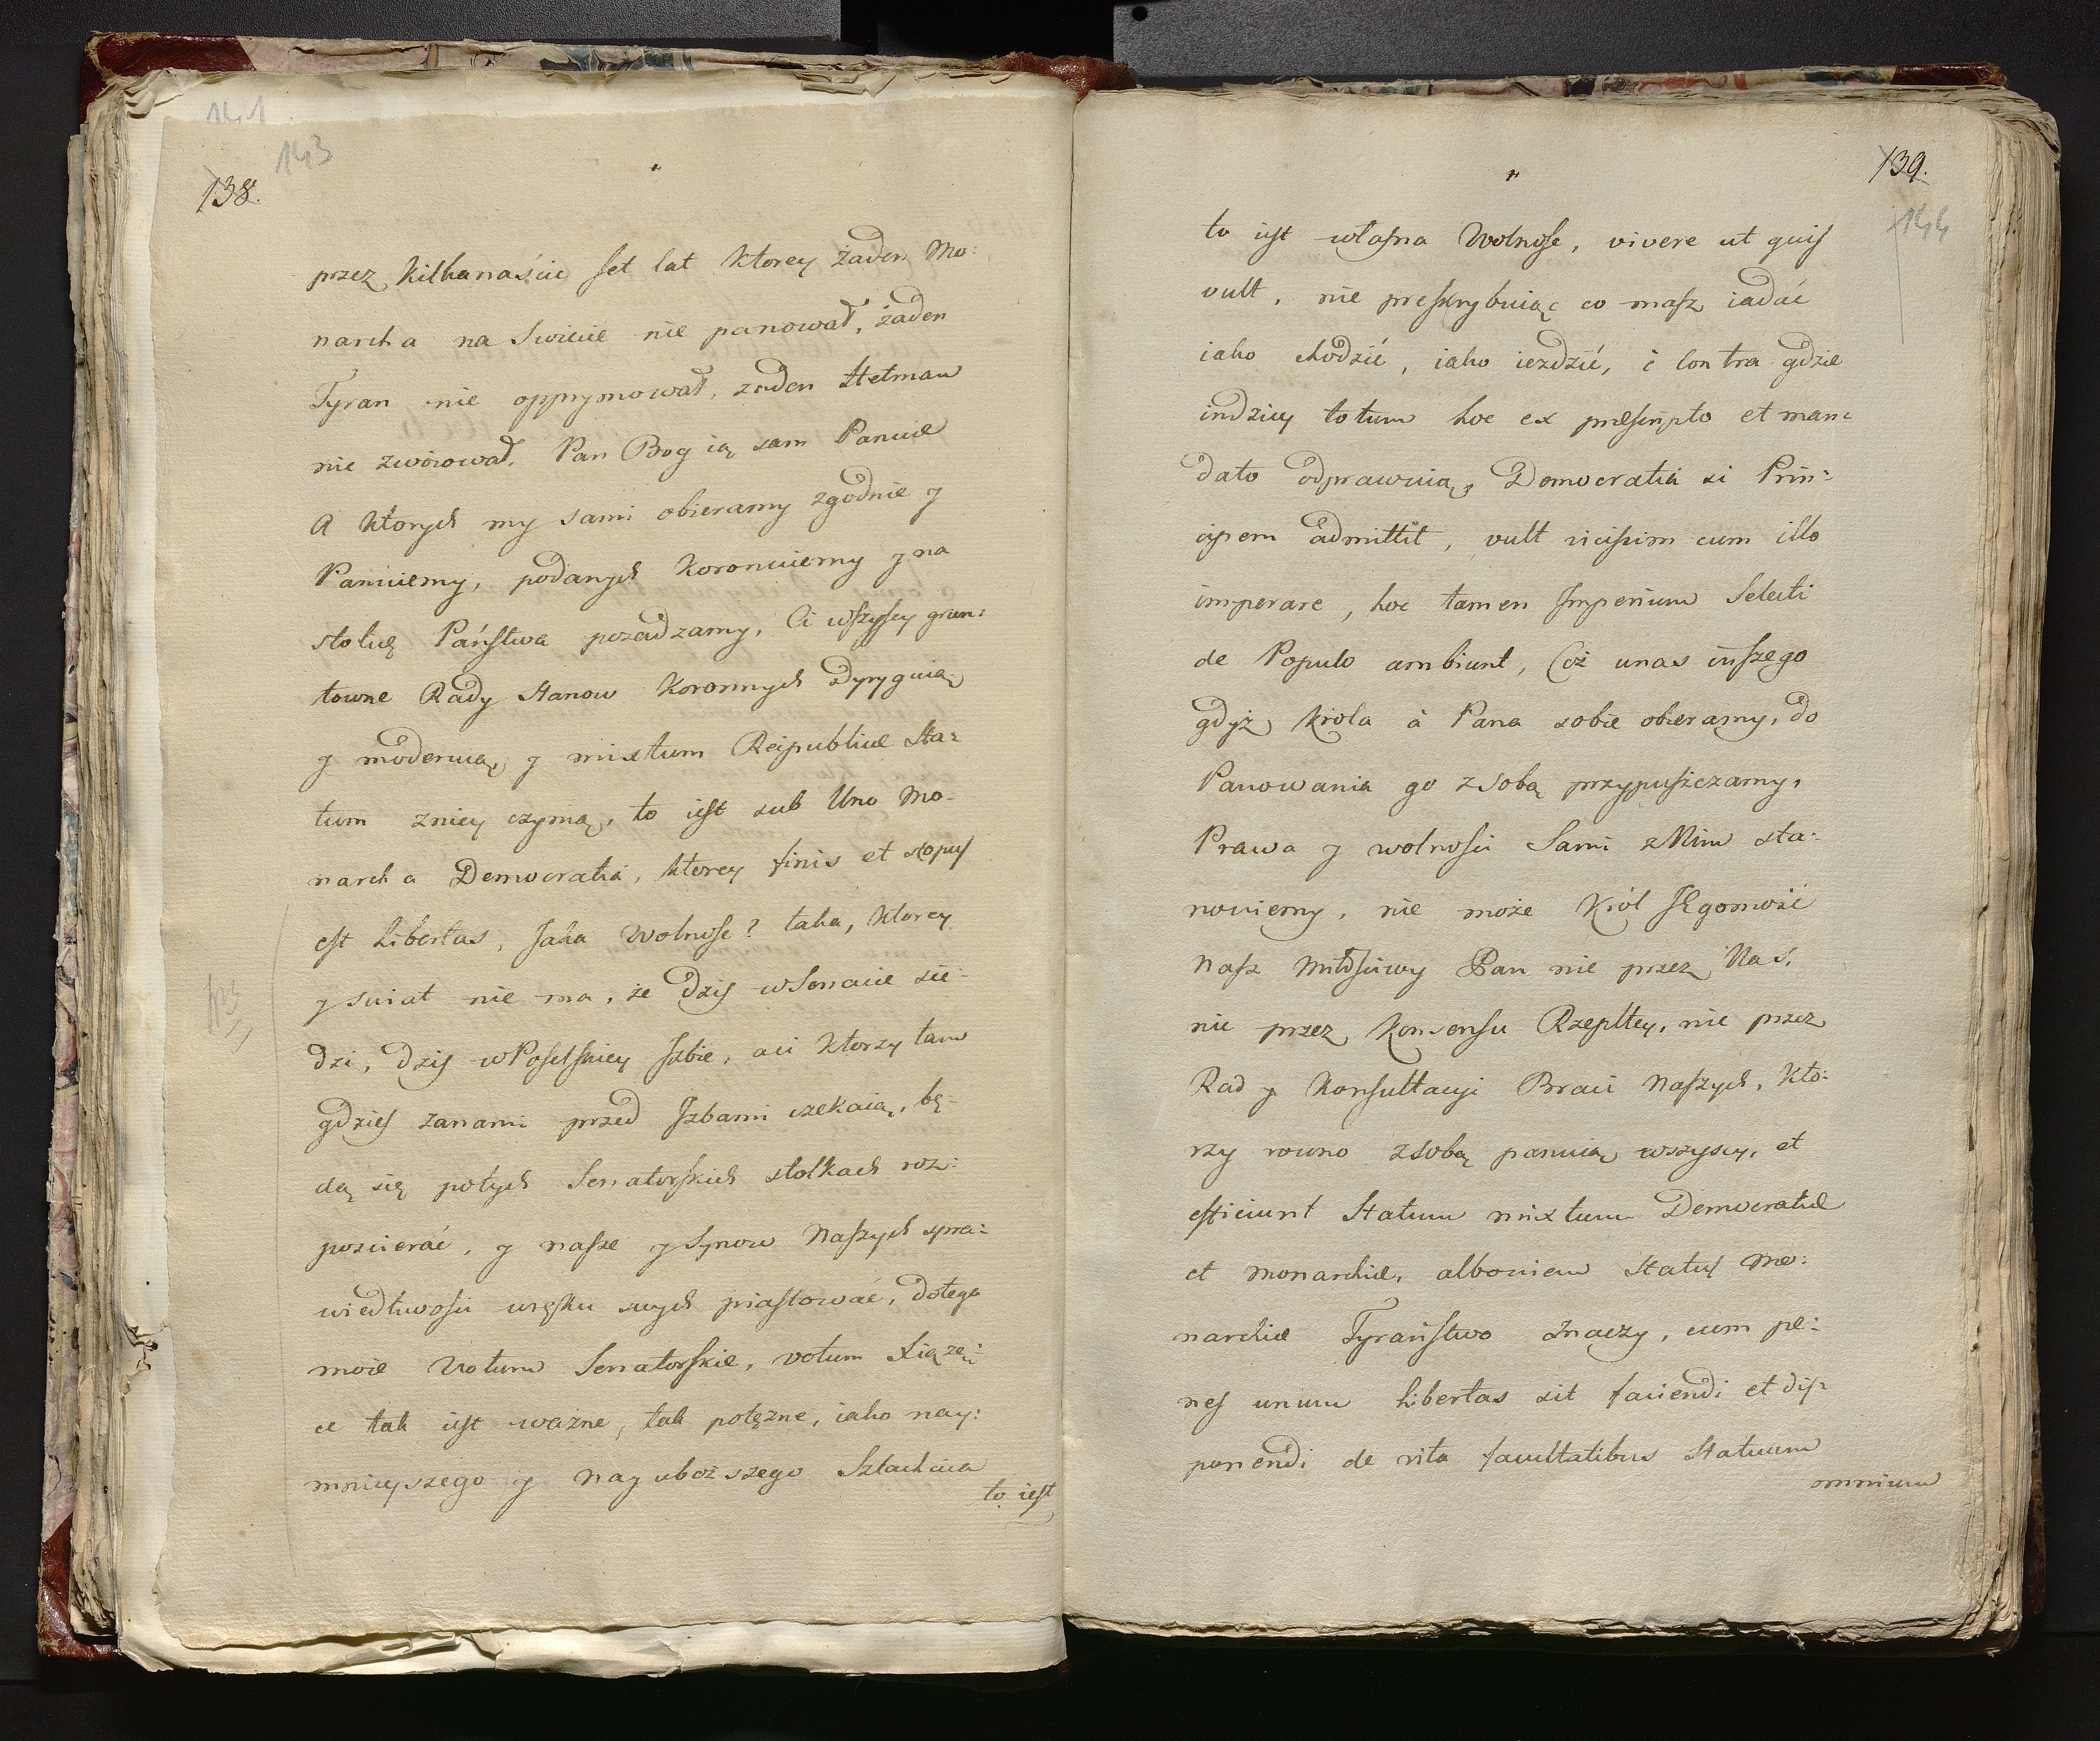 141
143
138.
przez kilkanaście set lat ktorey żaden Mo:
narcha na Swiecie nie panował, żaden
Tyran nie opprymował, żaden Hetman
nie zwoiował. Pan Bog ią sam Panuie
A ktorych my sami obieramy zgodnie y
Panuiemy, podanych Koronuiemy y na
stolicę Państwa posadzamy. Ci wszyscy grun:
towne Rady Stanow Koronnych dyryguią
y moderuią, y mixtum Reipublicae Sta:
tum zniey czynią, to iest sub Uno Mo-
narcha Democratia, ktorey finis et scopus
est Libertas, Jaka Wolnosc? taka, ktorey
y swiat nie ma, że dzis w Senacie sie-
dzi, dzis w Poselskiey Izbie, aci ktorzy tam
gdzies zanami przed Izbami czekaią, bę-
dą się potych Senatorskich stolkach roz:
poscierać, y nasze y Synow Naszych spra:
wiedliwosci wręku swych piastować, dotego
moie Votum Senatorskie, votum Xiążę:
ce tak iest ważne, tak potężne, iako nay:
mnieyszego y Nayuboższego Szlachcica
to iest
139.
144
to iest własna Wolnosc, vivere ut quis
vult, nie preskrybuiąc co masz iadać
iako chodzić, iako iezdzić, è contra gdzie
indziey totum hoc ex praescripto et man:
dato odprawuią, Democratia si Prin:
cipem admittit, vult vicissim cum illo
imperare, hoc tamen Imperium Selecti
de Populo ambiunt, Coż unas inszego
gdyż Krola à Pana sobie obieramy, do
Panowania go zsobą przypuszczamy,
Prawa y wolnosci Sami z Nim sta:
nowiemy, nie może Król JEgomość
Nasz Miłościwy Pan nic przez Nas,
nic przez Konsensu Rzepltey, nic przez
Rad y Konsultacyi Braci Naszych, kto:
rzy rowno zsobą panuią wszyscy, et
efficiunt Statum mixtum Democratiae
et Monarchiae, albowiem Status Mo:
narchiae Tyraństwo znaczy, cum pe:
nes unum libertas sit faciendi et dis:
ponendi de vita facultatibus Statuum
omnium